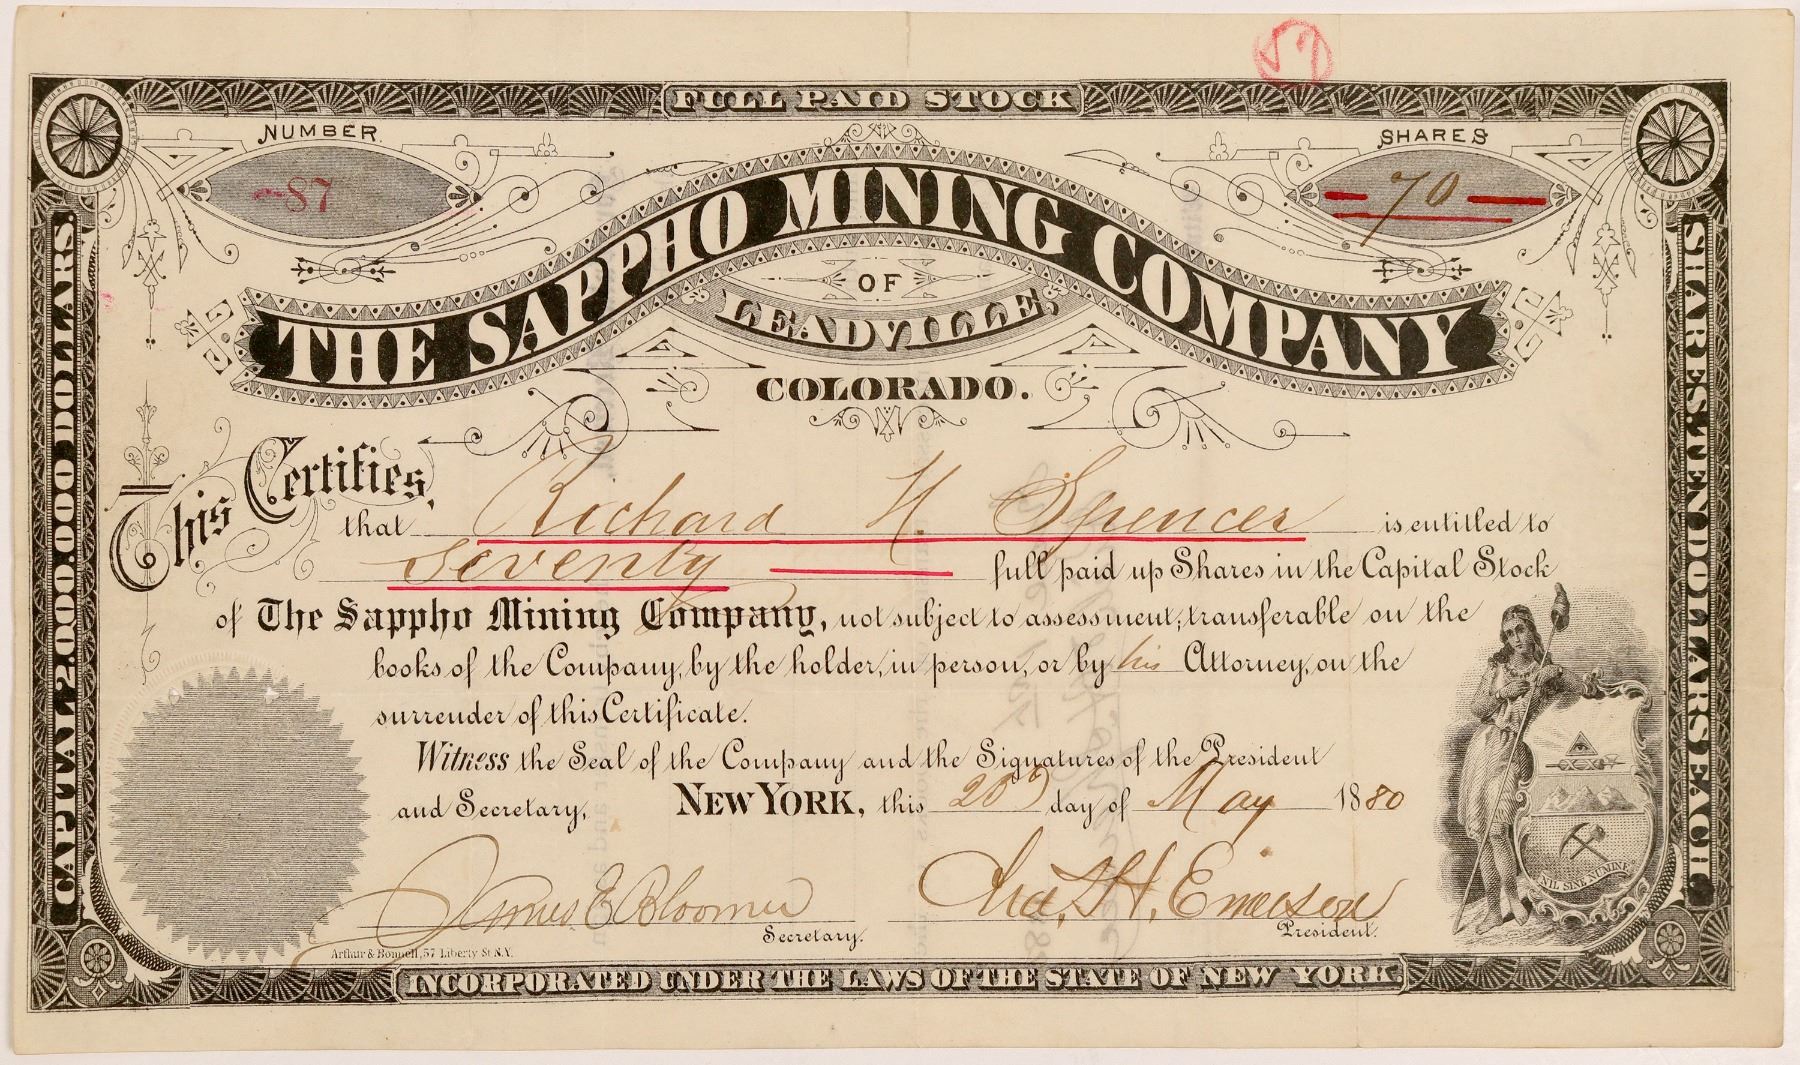 57
FULL PAID STOCK
NUMBER
87
SHARES
70
THE SAPPHO MINING COMPANY
OF
LEADVILLE,
COLORADO.
CAPITAL 2.000.000 DOLLARS.
SHARES TEN DOLLARS EACH
This Certifies,
that Richard H. Spencer is entitled to
Seventy full paid up Shares in the Capital Stock
of The Sappho Mining Company, not subject to assessment; transferable on the
books of the Company, by the holder, in person, or by his Attorney, on the
surrender of this Certificate.
Witness the Seal of the Company and the Signatures of the President
and Secretary, NEW YORK, this 20 day of May 1880
James E Bloomer
Secretary.
H. Emerson
President.
NIL SINE NUMINE
Arthur & Bonnell, 57 Liberty St N.Y.
INCORPORATED UNDER THE LAWS OF THE STATE OF NEW YORK